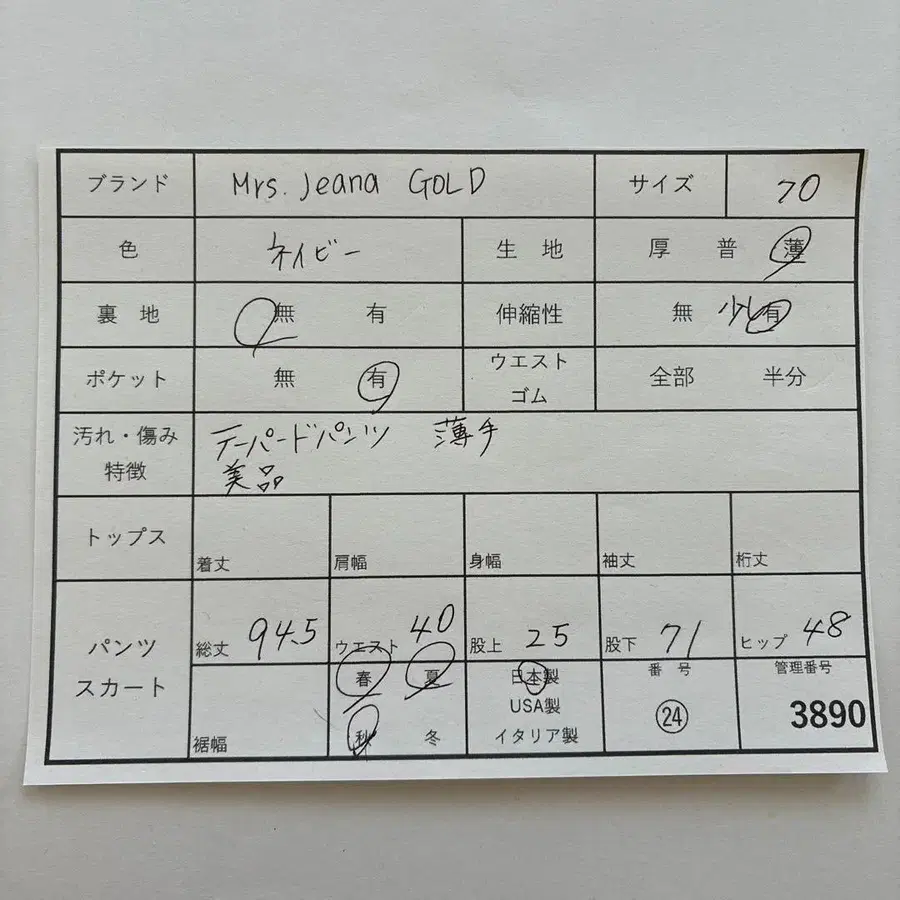 ブランド Mrs. Jeana GOLD サイズ 70
色 ネイビー 生地 厚 普 薄
裏地 無 有 伸縮性 無 少し有
ポケット 無 有 ウエスト
ゴム 全部 半分
汚れ・傷み テーパードパンツ 薄手
特徴 美品
トップス 着丈 肩幅 身幅 袖丈 裄丈
パンツ 総丈 94.5 ウエスト 40 股上 25 股下 71 ヒップ 48
スカート 裾幅 春 夏 日本製 番号 管理番号
USA製 ㉔ 3890
秋 冬 イタリア製